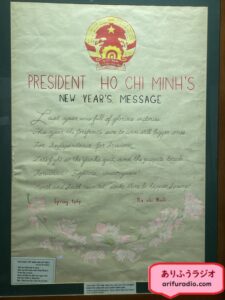 PRESIDENT HO CHI MINH'S
NEW YEAR'S MESSAGE
Last year was full of glorious victories
This year the forefronts sure to win still bigger ones
For Independence for Freedom
Let's fight so the yanks quit, and the puppets topple
Forward! Fighters, countrymen
North and South reunited, could there be happier Spring!
Spring 1969
Ho chi Minh
ありふうラジオ
arifuradio.com